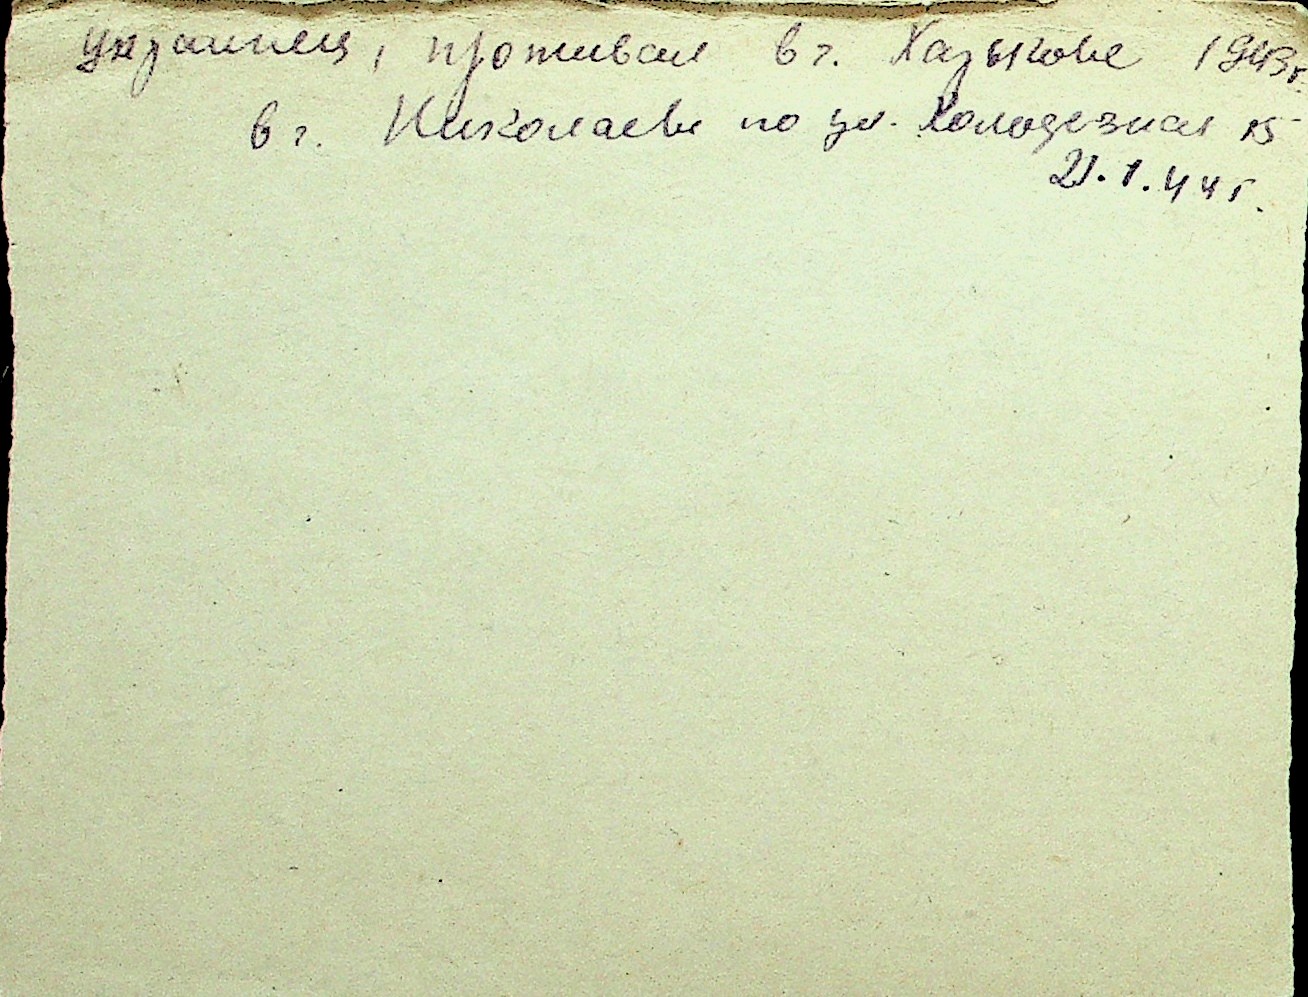 украинец, проживал в г. Харькове 1943г
в г. Николаеве по ул. Колодезная 15
21.1.44г.